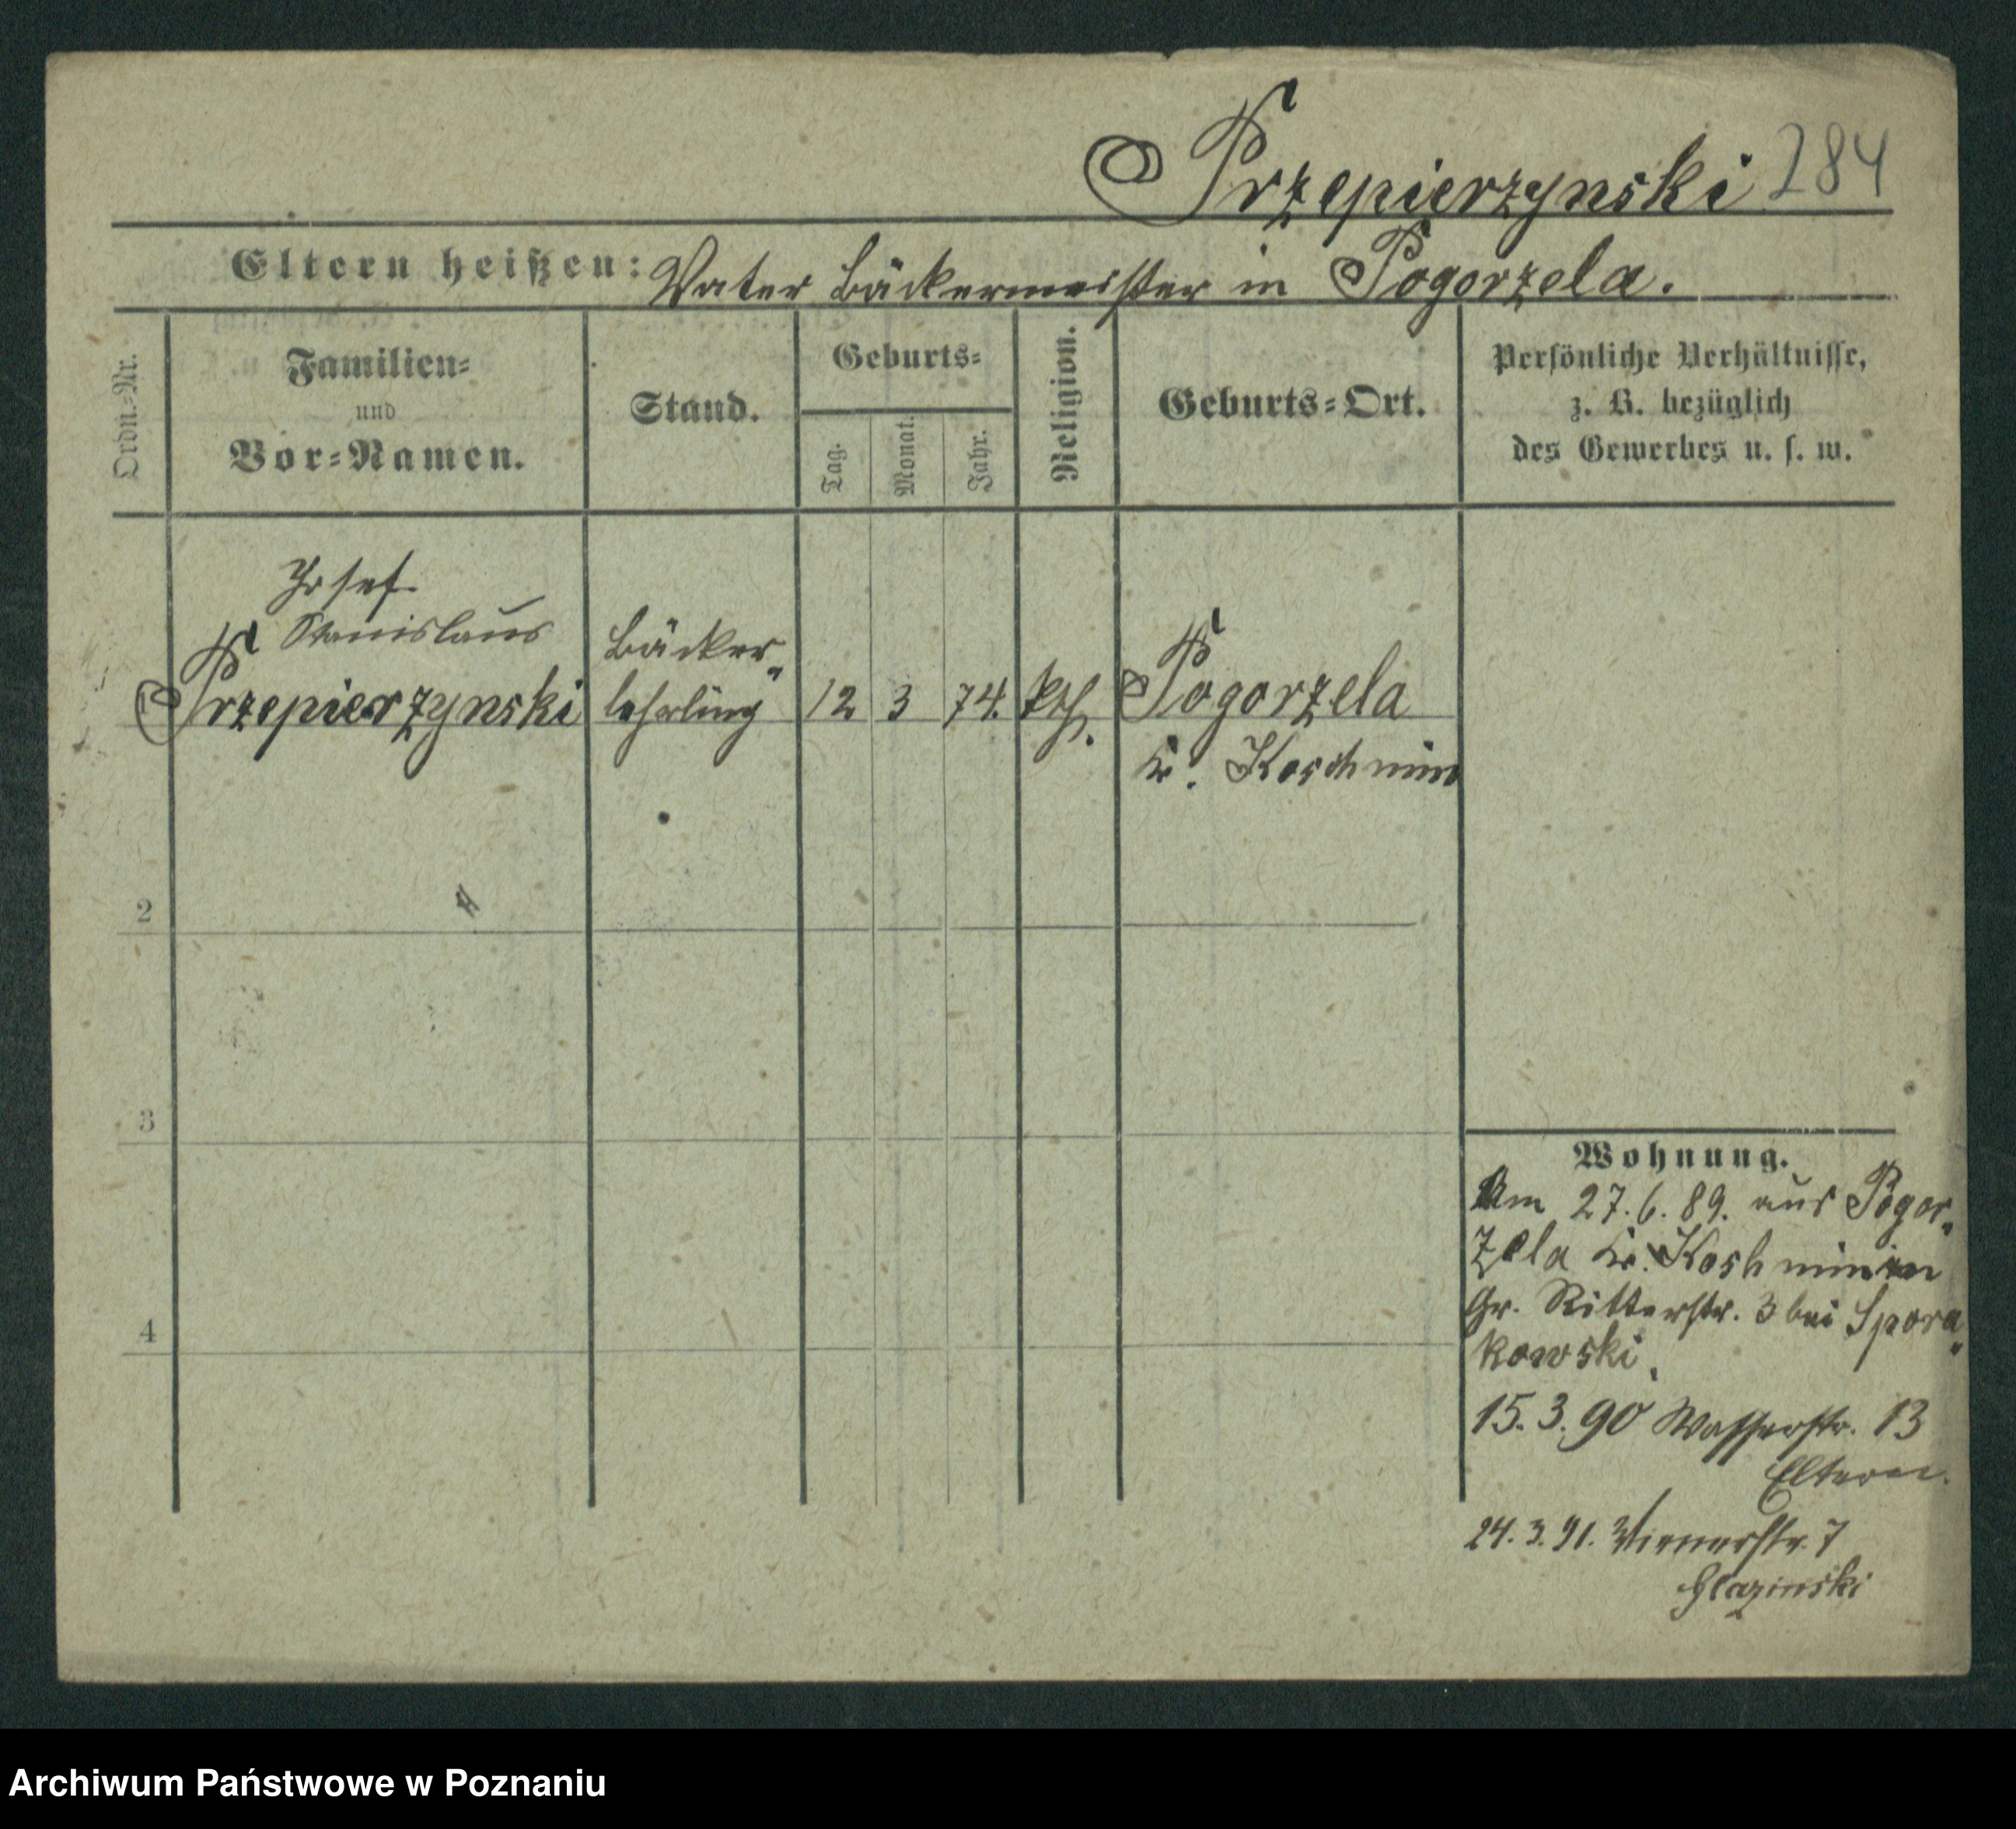 Przepierzynski 284
Eltern heißen: Vater Bäckermeister in Pogorzela.
Ordn.-Nr.
Familien-
und
Vor-Namen.
Stand.
Geburts-
Tag.
Monat.
Jahr.
Religion.
Geburts-Ort.
Persönliche Verhältnisse,
z. B. bezüglich
des Gewerbes u. s. w.
Josef
Stanislaus
Przepierzynski
Bäcker-
lehrling
12 3 74. kth.
Pogorzela
Kr. Koschmin
2
3
4
Wohnung.
Am 27.6.89. aus Pogor-
zela Kr. Koshmin in
Gr. Ritterstr. 3 bei Spora-
kowski.
15.3.90 Wasserstr. 13
Eltern.
24.3.91. Wienerstr. 7
Glazinski
Archiwum Państwowe w Poznaniu